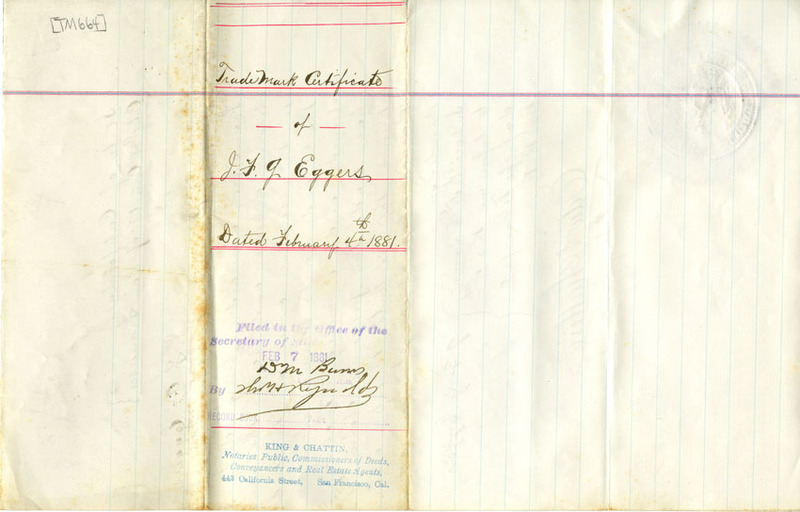 [TM664]
Trade Mark Certificate
— of —
J. F. G Eggers
Dated February 4th 1881.
Filed in the Office of the
Secretary of State
FEB 7 1881
D M Burns
By Thos H Reynolds
RECORD BOOK PAGE
KING & CHATTIN,
Notaries Public, Commissioners of Deeds,
Conveyancers and Real Estate Agents,
443 California Street, San Francisco, Cal.